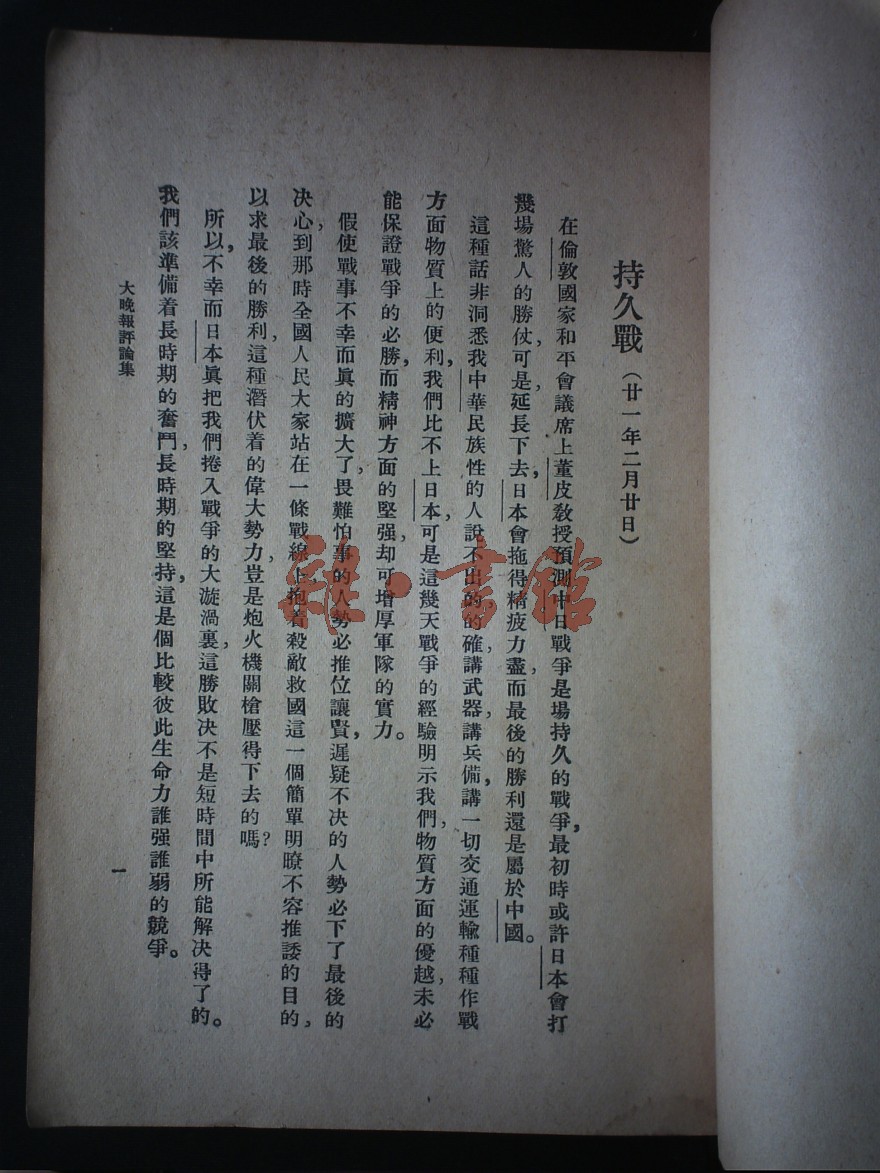 持久戰（廿一年二月廿日）
在倫敦國家和平會議席上董皮敎授預測中日戰爭是場持久的戰爭，最初時或許日本會打
幾場驚人的勝仗，可是，延長下去，日本會拖得精疲力盡，而最後的勝利還是屬於中國。
這種話非洞悉我中華民族性的人說不出的的確，講武器，講兵備，講一切交通運輸種種作戰
方面物質上的便利，我們比不上日本，可是這幾天戰爭的經驗明示我們，物質方面的優越，未必
能保證戰爭的必勝，而精神方面的堅强，却可增厚軍隊的實力。
假使戰事不幸而眞的擴大了，畏難怕事的人勢必推位讓賢，遲疑不决的人勢必下了最後的
决心，到那時全國人民大家站在一條戰線上，抱着殺敵救國這一個簡單明瞭不容推諉的目的，
以求最後的勝利，這種潛伏着的偉大勢力，豈是炮火機關槍壓得下去的嗎？
所以，不幸而日本眞把我們捲入戰爭的大漩渦裏，這勝敗决不是短時間中所能解决得了的。
我們該準備着長時期的奮鬥，長時期的堅持，這是個比較彼此生命力誰强誰弱的競爭。
大晚報評論集
一
雜·書館